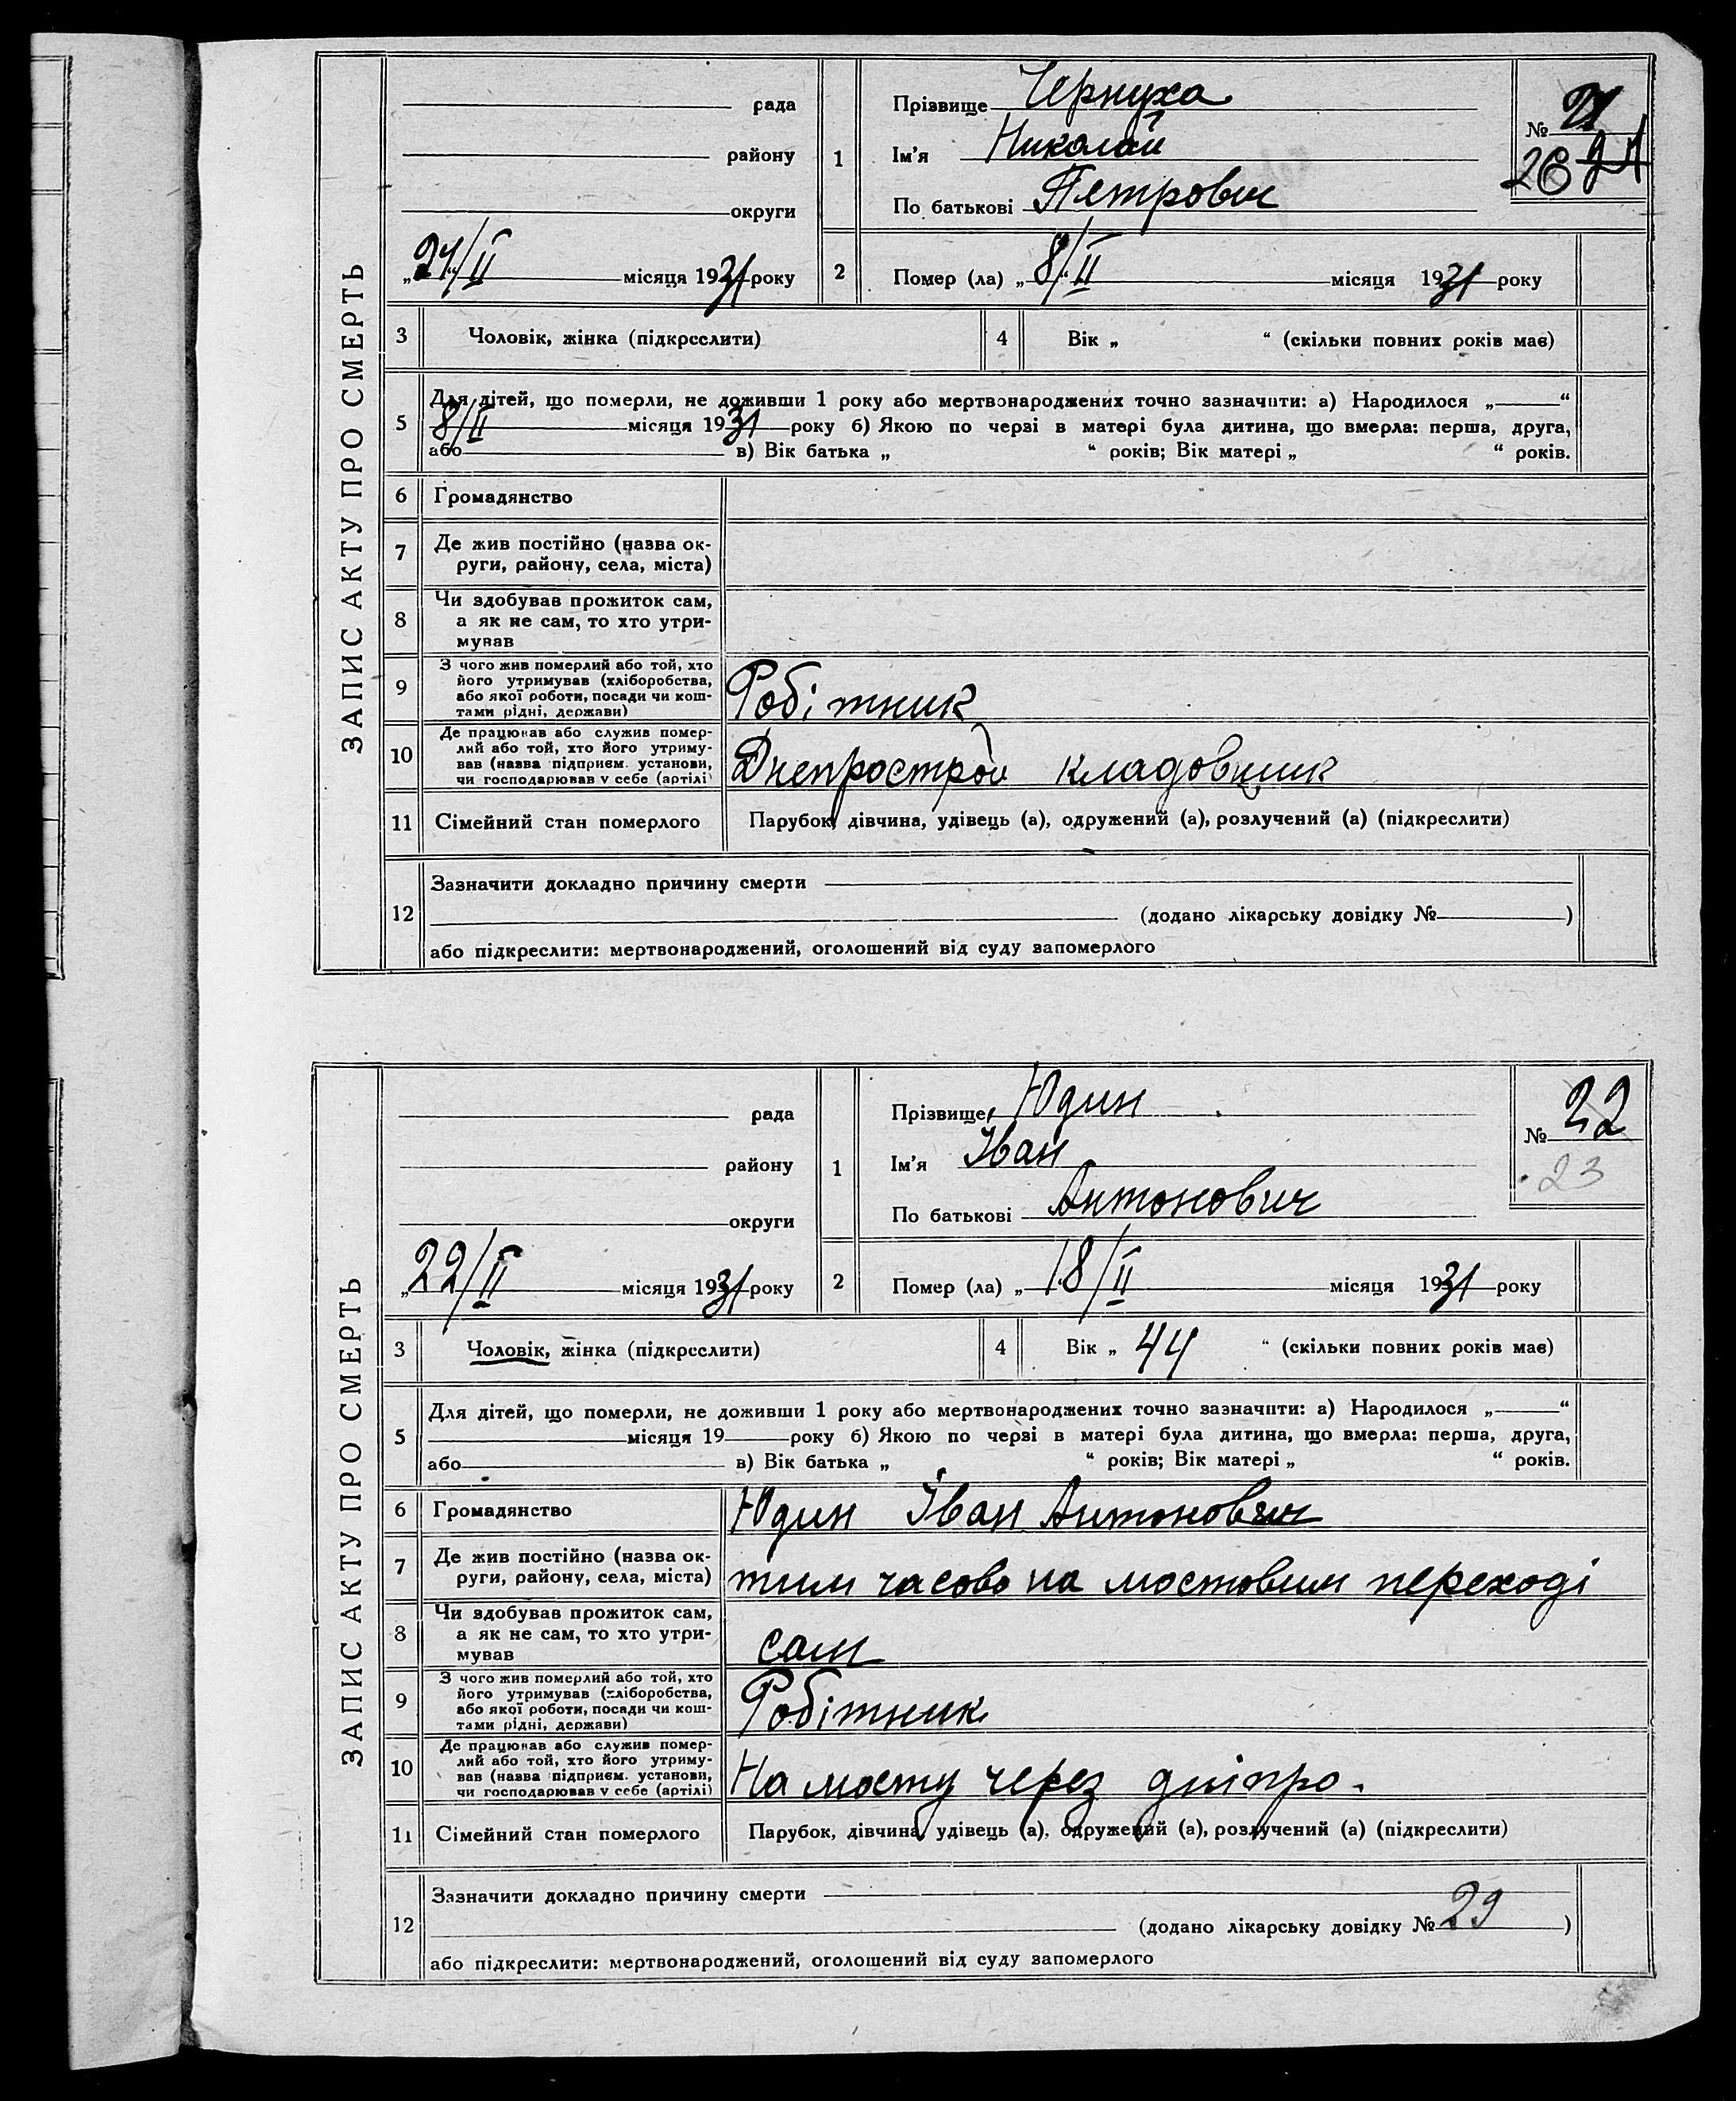 ЗАПИС АКТУ ПРО СМЕРТЬ
рада
району
округи
„21/II місяця 1931 року
1
Прізвище Чернуха
Ім'я Николай
По батькові Петрович
№ 21
26 21
2
Помер (ла) „8/II місяця 1931 року
3 Чоловік, жінка (підкреслити)
4 Вік „ “ (скільки повних років має)
5
Для дітей, що померли, не доживши 1 року або мертвонароджених точно зазначити: а) Народилося „ “
8/II місяця 1931 року б) Якою по черзі в матері була дитина, що вмерла: перша, друга,
або в) Вік батька „ “ років; Вік матері „ “ років.
6 Громадянство
7 Де жив постійно (назва ок-
руги, району, села, міста)
8 Чи здобував прожиток сам,
а як не сам, то хто утри-
мував
9 З чого жив померлий або той, хто
його утримував (хліборобства,
або якої роботи, посади чи кош-
тами рідні, держави)
Робітник
10 Де працював або служив помер-
лий або той, хто його утриму-
вав (назва підприєм. установи,
чи господарював у себе (артілі)
Днепрострой кладовщик
11 Сімейний стан померлого
Парубок, дівчина, удівець (а), одружений (а), розлучений (а) (підкреслити)
12
Зазначити докладно причину смерти
(додано лікарську довідку № )
або підкреслити: мертвонароджений, оголошений від суду запомерлого
ЗАПИС АКТУ ПРО СМЕРТЬ
рада
району
округи
„22/II місяця 1931 року
1
Прізвище Юдин
Ім'я Іван
По батькові Антонович
№ 22
23
2
Помер (ла) „18/II місяця 1931 року
3 Чоловік, жінка (підкреслити)
4 Вік „ 44 “ (скільки повних років має)
5
Для дітей, що померли, не доживши 1 року або мертвонароджених точно зазначити: а) Народилося „ “
місяця 19 року б) Якою по черзі в матері була дитина, що вмерла: перша, друга,
або в) Вік батька „ “ років; Вік матері „ “ років.
6 Громадянство
Юдин Іван Антонович
7 Де жив постійно (назва ок-
руги, району, села, міста)
тим часово на мостовим переході
8 Чи здобував прожиток сам,
а як не сам, то хто утри-
мував
сам
9 З чого жив померлий або той, хто
його утримував (хліборобства,
або якої роботи, посади чи кош-
тами рідні, держави)
Робітник
10 Де працював або служив помер-
лий або той, хто його утриму-
вав (назва підприєм. установи,
чи господарював у себе (артілі)
На мосту через дніпро.
11 Сімейний стан померлого
Парубок, дівчина, удівець (а), одружений (а), розлучений (а) (підкреслити)
12
Зазначити докладно причину смерти
(додано лікарську довідку № 29 )
або підкреслити: мертвонароджений, оголошений від суду запомерлого